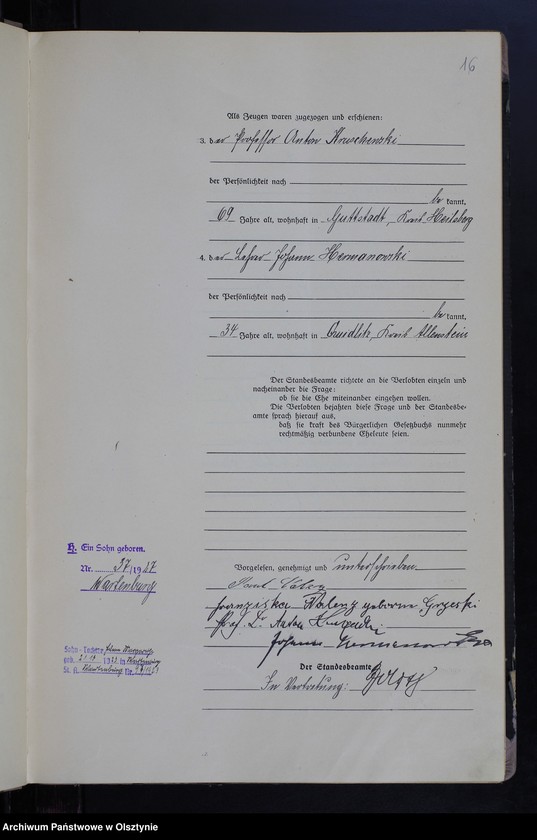 16
Als Zeugen waren zugezogen und erschienen:
3. der Professor Anton
der Persönlichkeit nach
be kannt,
69 Jahre alt, wohnhaft in Guttstadt, Heilsberg
4. der Lehrer Johann Hermanowski
der Persönlichkeit nach
be kannt,
34 Jahre alt, wohnhaft in Allenstein
Der Standesbeamte richtete an die Verlobten einzeln und
nacheinander die Frage:
ob sie die Ehe miteinander eingehen wollen.
Die Verlobten bejahten diese Frage und der Standesbe-
amte sprach hierauf aus,
daß sie kraft des Bürgerlichen Gesetzbuchs nunmehr
rechtmäßig verbundene Eheleute seien.
H. Ein Sohn geboren.
Nr. 37/1927
Wartenburg
Vorgelesen, genehmigt und unterschrieben
Franziska geborene
Prof. Dr. Anton
Johann Hermanowski
Sohn - Tochter
geb. in
St. A. Wartenburg Nr.
Der Standesbeamte
In Vertretung:
Archiwum Państwowe w Olsztynie